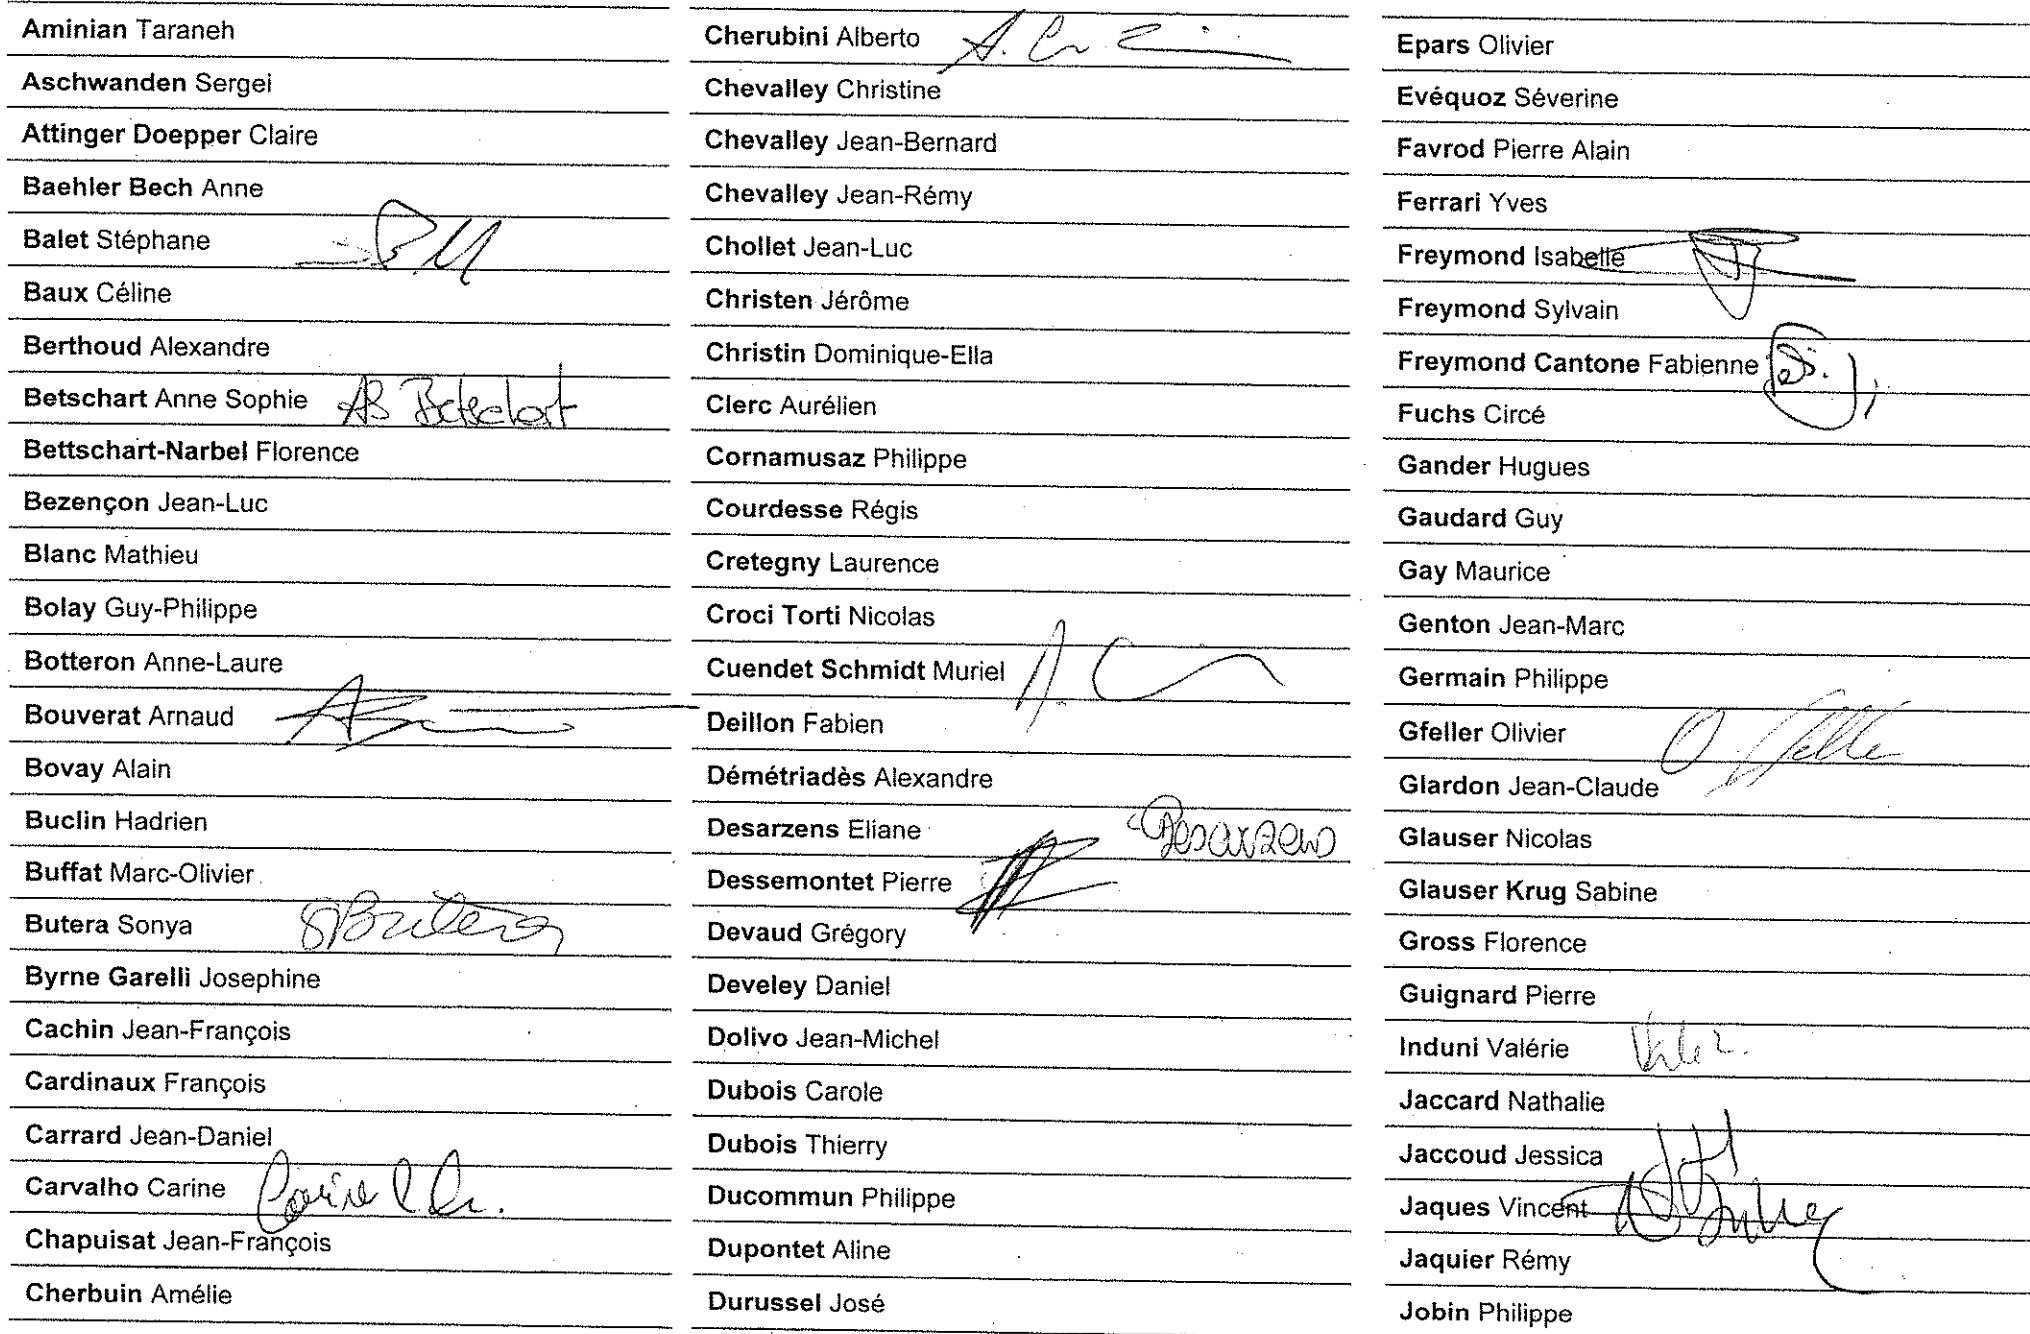 Aminian Taraneh
Aschwanden Sergei
Attinger Doepper Claire
Baehler Bech Anne
Balet Stéphane
Baux Céline
Berthoud Alexandre
Betschart Anne Sophie AS Betschart
Bettschart-Narbel Florence
Bezençon Jean-Luc
Blanc Mathieu
Bolay Guy-Philippe
Botteron Anne-Laure
Bouverat Arnaud
Bovay Alain
Buclin Hadrien
Buffat Marc-Olivier
Butera Sonya SButera
Byrne Garelli Josephine
Cachin Jean-François
Cardinaux François
Carrard Jean-Daniel
Carvalho Carine Carine
Chapuisat Jean-François
Cherbuin Amélie
Cherubini Alberto
Chevalley Christine
Chevalley Jean-Bernard
Chevalley Jean-Rémy
Chollet Jean-Luc
Christen Jérôme
Christin Dominique-Ella
Clerc Aurélien
Cornamusaz Philippe
Courdesse Régis
Cretegny Laurence
Croci Torti Nicolas
Cuendet Schmidt Muriel
Deillon Fabien
Démétriadès Alexandre
Desarzens Eliane Desarzens
Dessemontet Pierre
Devaud Grégory
Develey Daniel
Dolivo Jean-Michel
Dubois Carole
Dubois Thierry
Ducommun Philippe
Dupontet Aline
Durussel José
Epars Olivier
Evéquoz Séverine
Favrod Pierre Alain
Ferrari Yves
Freymond Isabelle
Freymond Sylvain
Freymond Cantone Fabienne
Fuchs Circé
Gander Hugues
Gaudard Guy
Gay Maurice
Genton Jean-Marc
Germain Philippe
Gfeller Olivier O. Gfeller
Glardon Jean-Claude
Glauser Nicolas
Glauser Krug Sabine
Gross Florence
Guignard Pierre
Induni Valérie
Jaccard Nathalie
Jaccoud Jessica
Jaques Vincent
Jaquier Rémy
Jobin Philippe